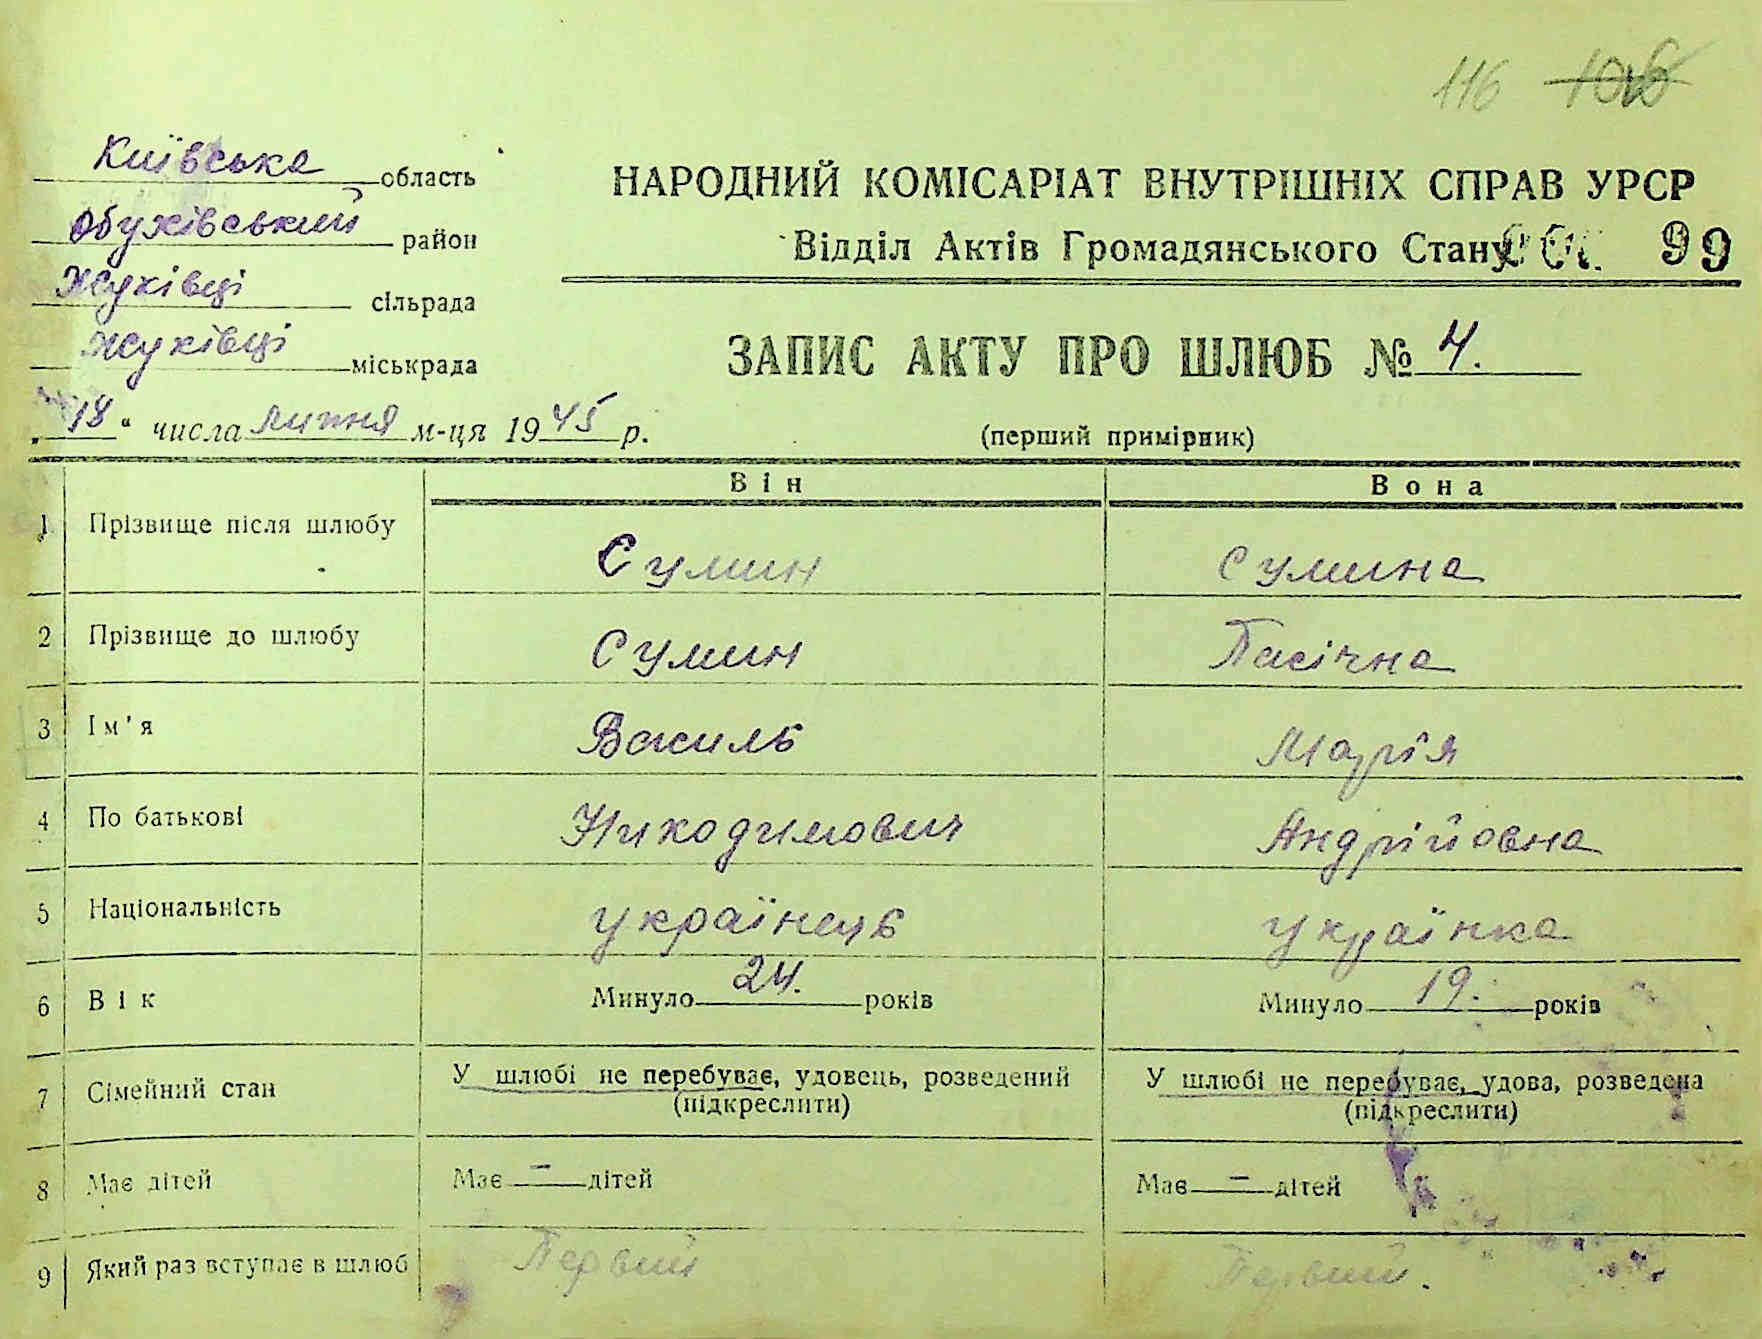 116 106
Київська область
Обухівський район
Жуківці сільрада
Жуківці міськрада
„18“ числа липня м-ця 1945 р.
НАРОДНИЙ КОМІСАРІАТ ВНУТРІШНІХ СПРАВ УРСР
Відділ Актів Громадянського Стану 99
ЗАПИС АКТУ ПРО ШЛЮБ № 4.
(перший примірник)
Він Вона
1 Прізвище після шлюбу Сумин Сумина
2 Прізвище до шлюбу Сумин Пасічна
3 Ім'я Василь Марія
4 По батькові Никодимович Андрійовна
5 Національність українець українка
6 Вік Минуло 24. років Минуло 19. років
7 Сімейний стан У шлюбі не перебуває, удовець, розведений У шлюбі не перебуває, удова, розведена
(підкреслити) (підкреслити)
8 Має дітей Має — дітей Має — дітей
9 Який раз вступає в шлюб Первий Первий.